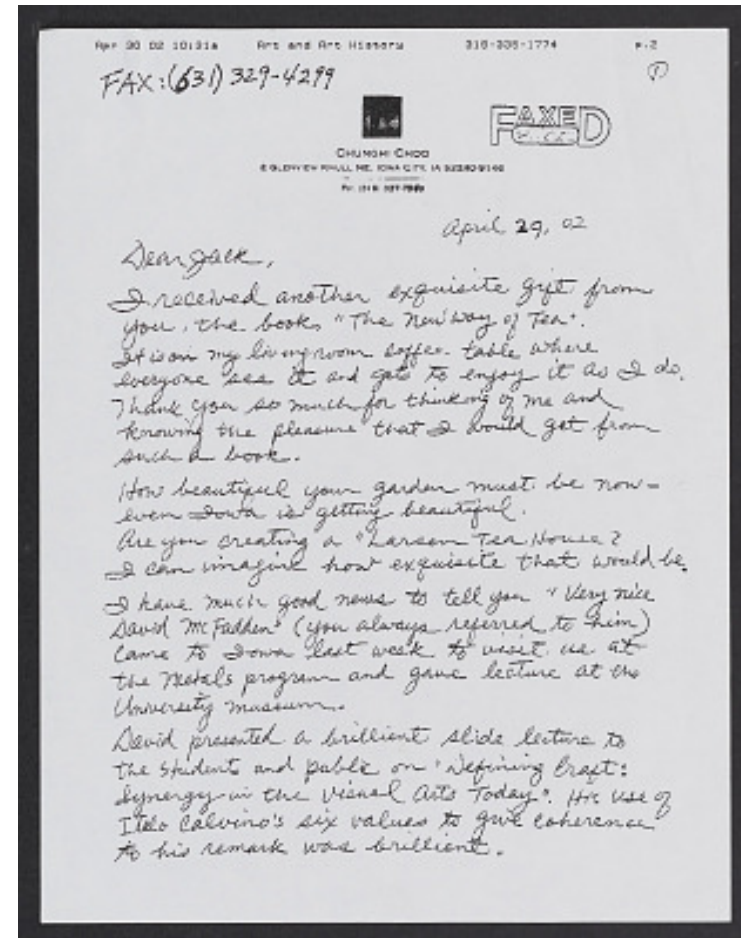 Apr 30 02 10:31a Art and Art History 319-335-1774 p.2
FAX: (631) 329-4299
1
FAXED
CHUNGHI CHOO
GLENVIEW KNOLL, NE, IOWA CITY, IA
April 29, 02
Dear Jack,
I received another exquisite gift from
you, the book, "The New Way of Tea".
It is on my living room coffee table where
everyone see it and gets to enjoy it as I do.
Thank you so much for thinking of me and
knowing the pleasure that I would get from
such a book.
How beautiful your garden must be now –
even Iowa is getting beautiful.
Are you creating a "Larsen Tea House?
I can imagine how exquisite that would be.
I have much good news to tell you "Very nice
David McFadden" (you always referred to him)
came to Iowa last week to visit us at
the Metals program and gave lecture at the
University museum.
David presented a brillient slide lecture to
the students and public on "Defining Craft:
Synergy in the Visual Arts Today". His use of
Italo Calvino's six values to give coherence
to his remark was brillient.